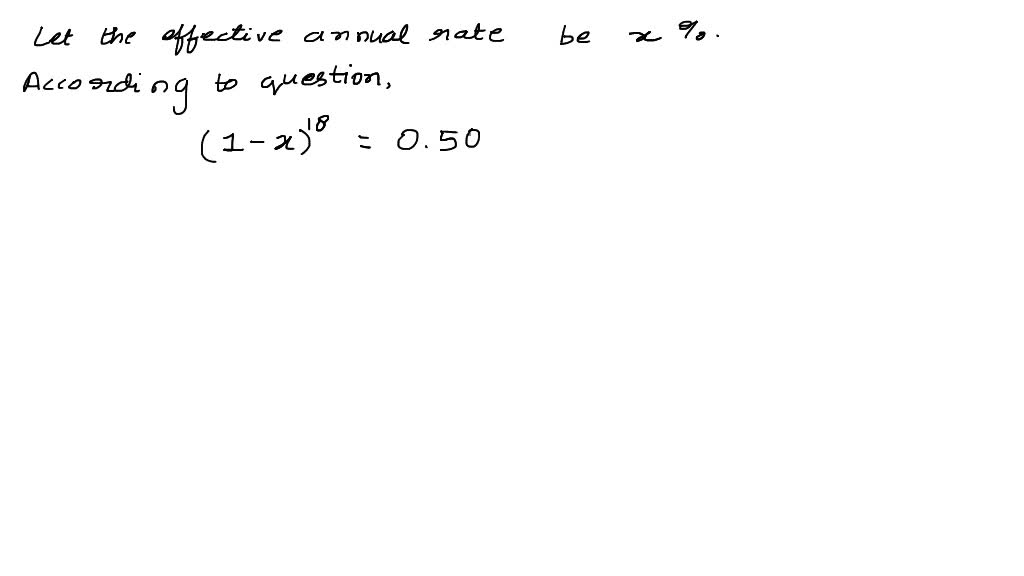 Let the effective annual rate be x %.
According to question,
(1-x)^18 = 0.50